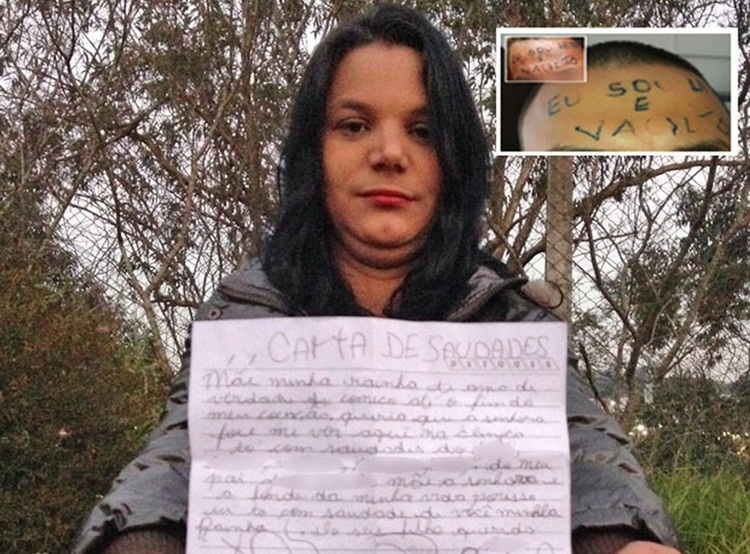 ,, CARTA DE SAUDADES
Mãe minha rainha te amo de
verdade do começo até o fim do
meu coração queria que a senhora
fose me ver aqui na clinica
tô com saudades do
do meu
pai mãe a senhora e
a minha vida
eu to com saudade di você minha
Rainha seu filho querido
EU SOU
E
VACILÃO